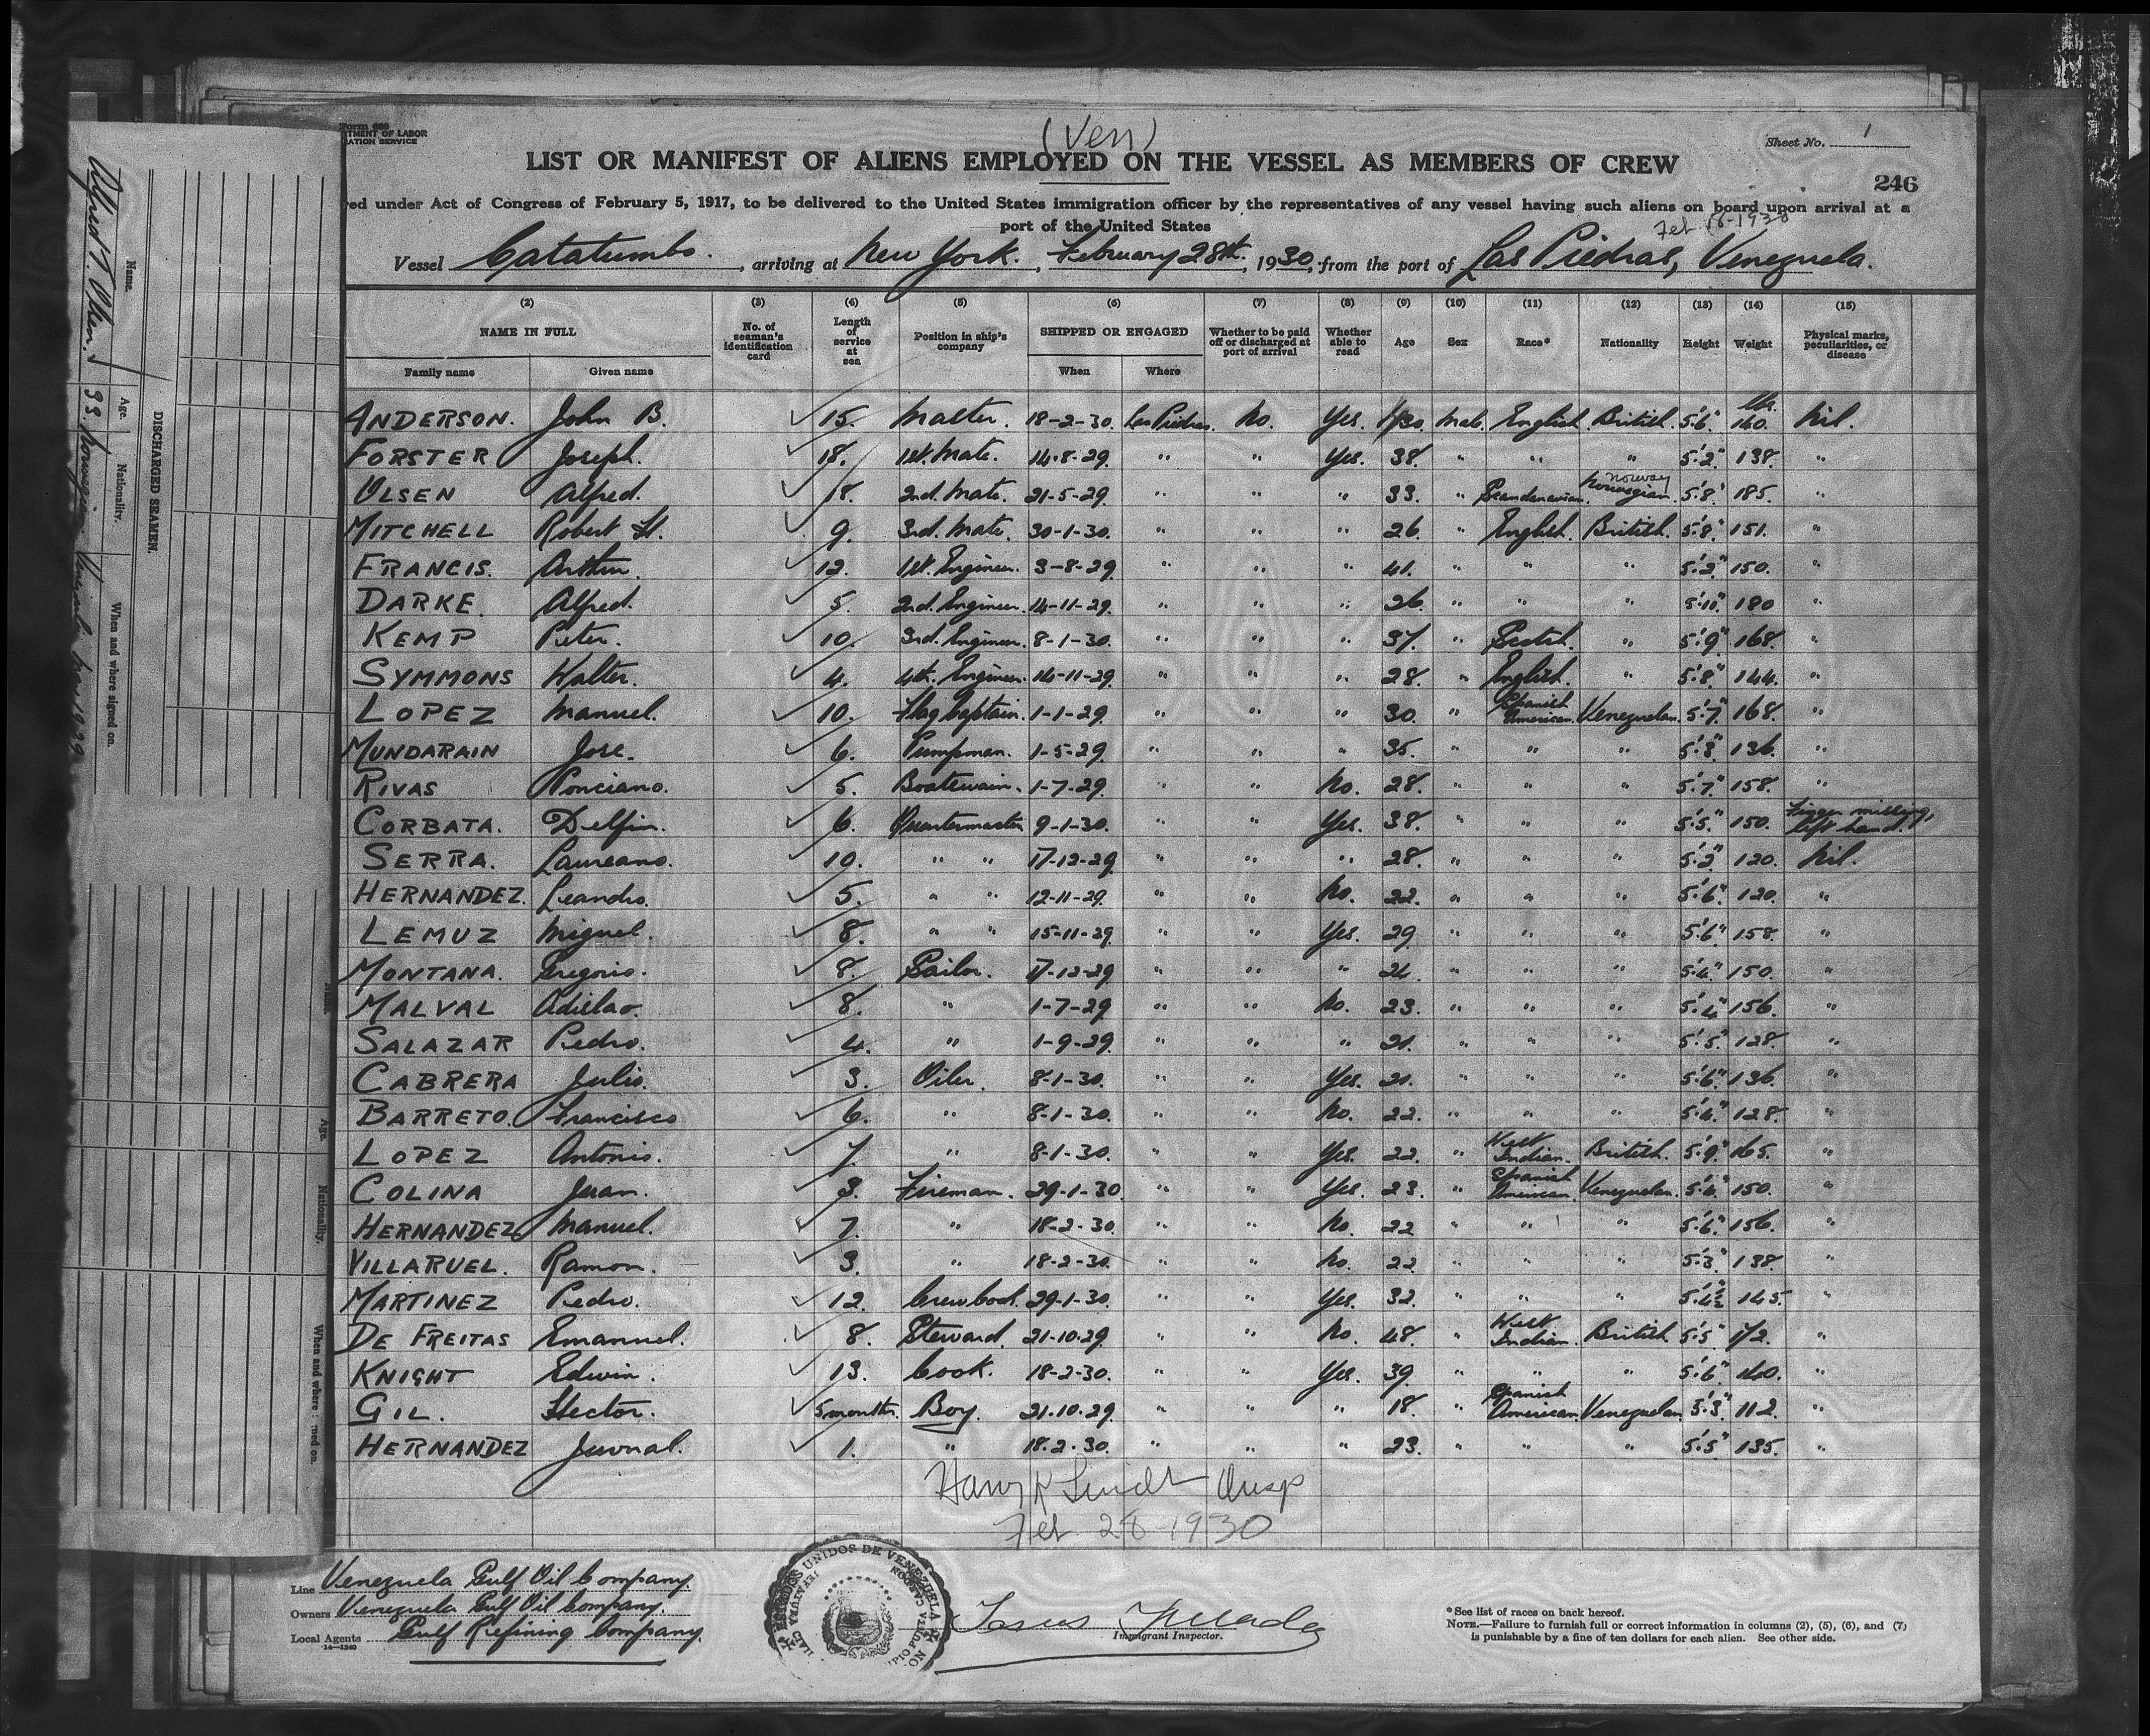 Form 680
TMENT OF LABOR
RATION SERVICE
(Ven)
Sheet No. 1
LIST OR MANIFEST OF ALIENS EMPLOYED ON THE VESSEL AS MEMBERS OF CREW
246
ed under Act of Congress of February 5, 1917, to be delivered to the United States immigration officer by the representatives of any vessel having such aliens on board upon arrival at a
port of the United States
Feb 18-1930
Vessel Catatumbo. , arriving at New York. , February 28th. , 1930, from the port of Las Piedras, Venezuela.
(2) (3) (4) (5) (6) (7) (8) (9) (10) (11) (12) (13) (14) (15)
NAME IN FULL No. of seaman's identification card Length of service at sea Position in ship's company SHIPPED OR ENGAGED Whether to be paid off or discharged at port of arrival Whether able to read Age Sex Race* Nationality Height Weight Physical marks, peculiarities, or disease
Family name Given name When Where
ANDERSON. John B. ✓ 15. Master. 18-2-30. Las Piedras. No. Yes. Male. English. British. 5'6" lbs. 160. Nil.
FORSTER Joseph. ✓ 18. 1st. Mate. 14-8-29. " " Yes. 38. " " " 5'2" 138. "
OLSEN Alfred. ✓ 18. 2nd. Mate. 21-5-29. " " " 33. " Scandanavian. Norwegian. Norway 5'8" 185. "
MITCHELL Robert H. ✓ 9. 3rd. Mate. 30-1-30. " " " 26. " English. British. 5'8" 151. "
FRANCIS. Arthur. ✓ 12. 1st. Engineer. 3-8-29. " " " 41. " " " 5'2" 150. "
DARKE. Alfred. ✓ 5. 2nd. Engineer. 14-11-29. " " " 26. " " " 5'10" 180 "
KEMP Peter. ✓ 10. 3rd. Engineer. 8-1-30. " " " 37. " Scotch. " 5'9" 168. "
SYMMONS Walter. ✓ 4. 4th. Engineer. 14-11-29. " " " 28. " English. " 5'8" 144. "
LOPEZ Manuel. ✓ 10. Flag Captain. 1-1-29. " " " 30. " Spanish American. Venezuelan. 5'7" 168. "
MUNDARAIN Jose. ✓ 6. Pumpman. 1-5-29. " " " 35. " " " 5'3" 136. "
RIVAS Ponciano. ✓ 5. Boatswain. 1-7-29. " " No. 28. " " " 5'7" 158. "
CORBATA. Delfin. ✓ 6. Quartermaster 9-1-30. " " Yes. 38. " " " 5'5" 150. Finger missing, left hand.
SERRA. Laureano. ✓ 10. " " 17-12-29. " " " 28. " " " 5'2" 120. Nil.
HERNANDEZ. Leandro. ✓ 5. " " 12-11-29. " " No. 22. " " " 5'6" 120. "
LEMUZ Miguel. ✓ 8. " " 15-11-29. " " Yes. 29 " " " 5'6" 158. "
MONTANA. Gregorio. ✓ 8. Sailor. 17-12-29. " " " 24. " " " 5'4" 150. "
MALVAL ✓ 8. " 1-7-29 " " No. 23. " " " 5'4" 156. "
SALAZAR Pedro. ✓ 4. " 1-9-29. " " " 21. " " " 5'5" 128. "
CABRERA Julio. ✓ 3. Oiler. 8-1-30. " " Yes. 21. " " " 5'6" 136. "
BARRETO. Francisco ✓ 6. " 8-1-30. " " No. 22. " " " 5'4" 128. "
LOPEZ Antonio. ✓ 7. " 8-1-30. " " Yes. 22. " West Indian. British. 5'9" 165. "
COLINA Juan. ✓ 3. Fireman. 29-1-30. " " Yes. 23. " Spanish American Venezuelan. 5'6" 150. "
HERNANDEZ Manuel. ✓ 7. " 18-2-30 " " No. 22 " " " 5'6" 156. "
VILLARUEL. Ramon. ✓ 3. " 18-2-30. " " No. 22 " " " 5'3" 138. "
MARTINEZ Pedro. ✓ 12. Crew Cook. 29-1-30. " " Yes. 32. " " " 5'4½ 145. "
DE FREITAS Emanuel. ✓ 8. Steward. 21-10-29. " " No. 48. " West Indian. British. 5'5" 172. "
KNIGHT Edwin. ✓ 13. Cook. 18-2-30. " " Yes. 39. " " " 5'6" 160. "
GIL. Hector. ✓ 5 months. Boy. 21-10-29. " " " 18. " Spanish American. Venezuelan. 5'3" 112. "
HERNANDEZ Juvnal. ✓ 1. " 18.2.30. " " " 23. " " " 5'5" 135. "
Insp
Feb. 28-1930
Line Venezuela Gulf Oil Company.
Owners Venezuela Gulf Oil Company.
Local Agents Gulf Refining Company.
14-1240
UNIDOS DE VENEZUELA
Immigrant Inspector.
* See list of races on back hereof.
NOTE.—Failure to furnish full or correct information in columns (2), (5), (6), and (7)
is punishable by a fine of ten dollars for each alien. See other side.
DISCHARGED SEAMEN.
Name. Age. Nationality. When and where signed on.
Alfred T. Olsen. 33. Norwegian
Age. Nationality. When and where